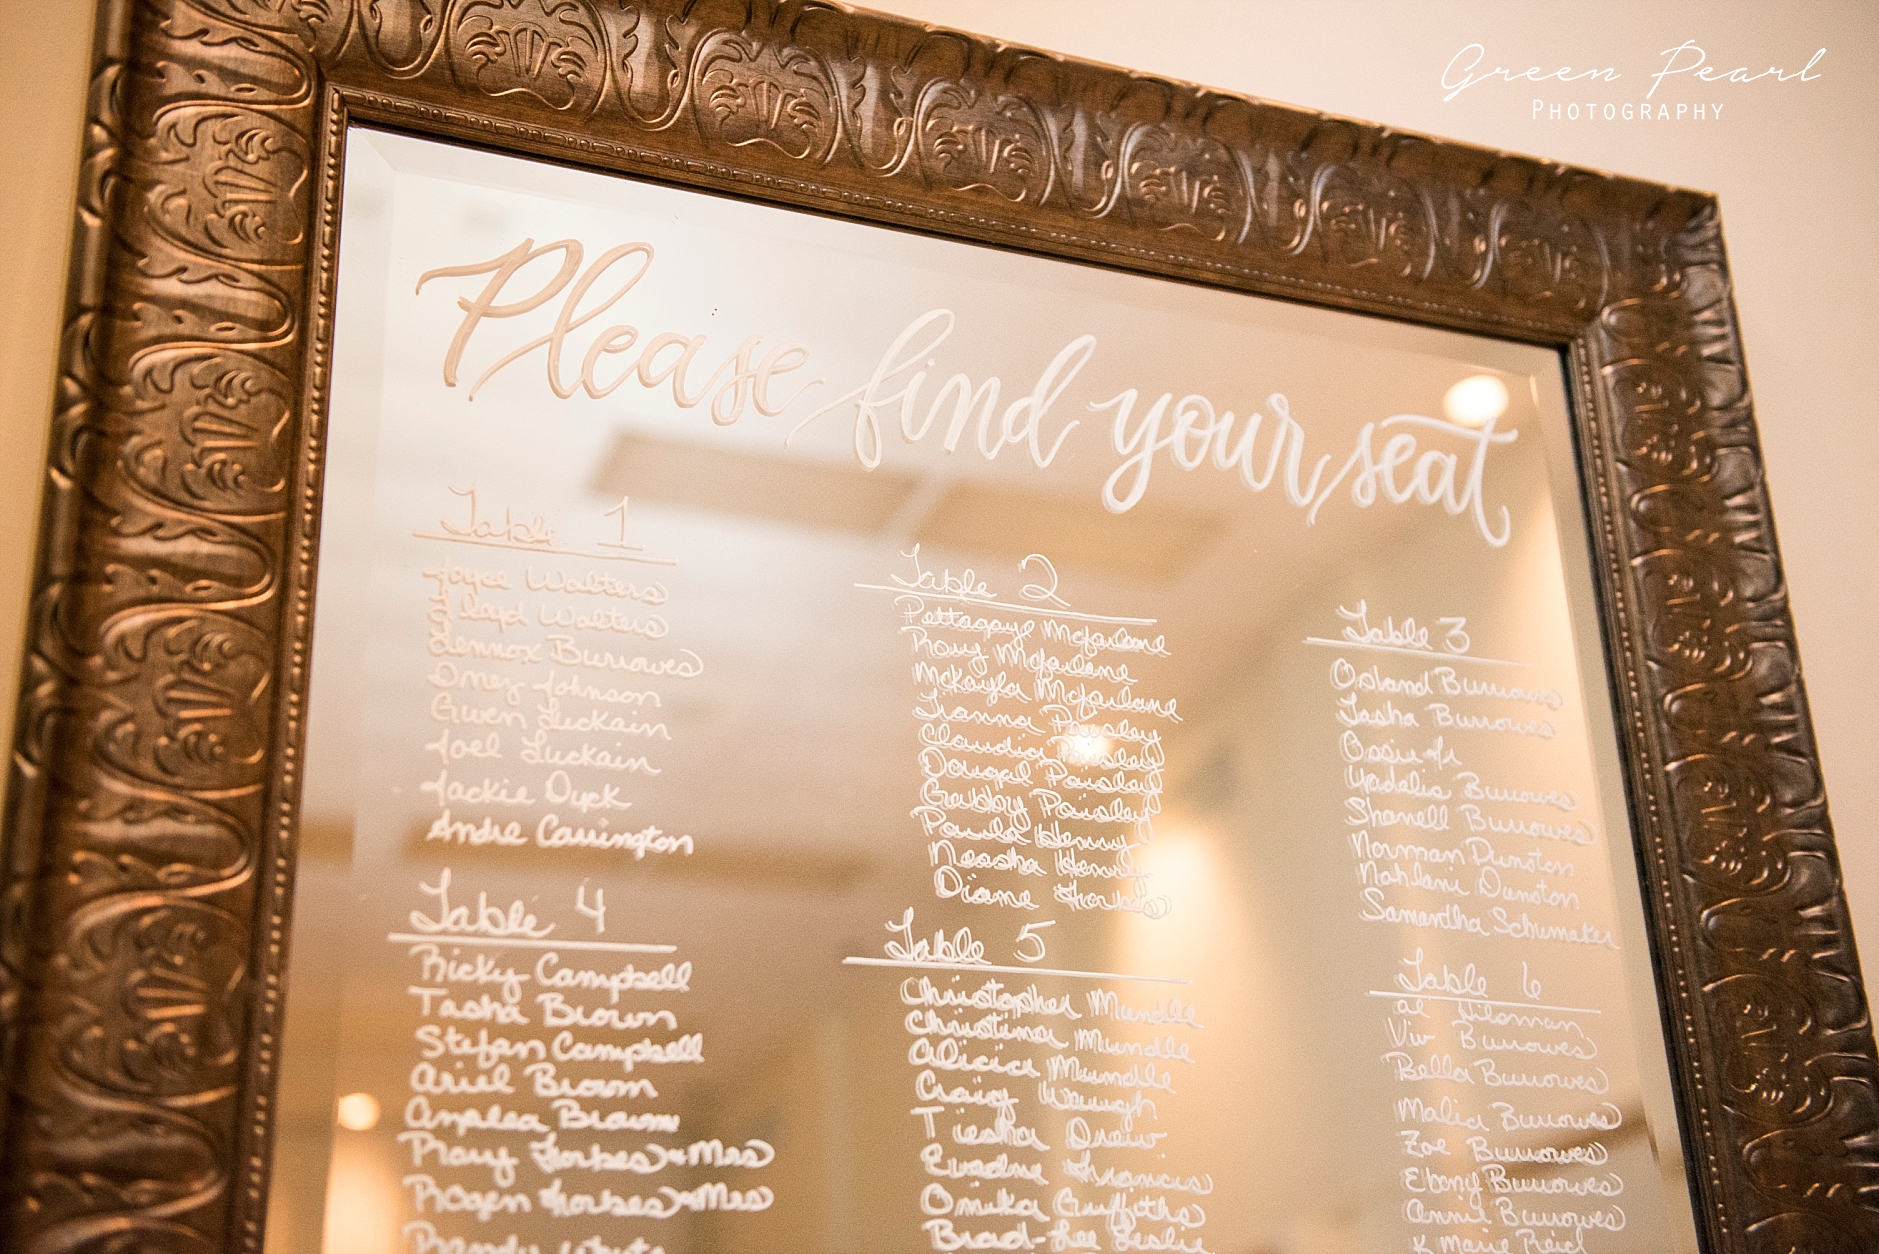 Green Pearl
PHOTOGRAPHY
Please find your seat
Table 1
Joyce Walters
Lloyd Walters
Lennox Burrowes
Omez Johnson
Gwen Luckain
Joel Luckain
Jackie Dyck
Andre Carrington
Table 2
Pettagaye Mcfarlane
Rory Mcfarlane
McKayla Mcfarlane
Tianna Paisley
Claudia Paisley
Dougal Paisley
Gabby Paisley
Paula Henry
Neosha Henry
Diane Forbes
Table 3
Osland Burrowes
Tasha Burrowes
Ossie Jr
Burrowes
Shanell Burrowes
Norman Dunston
Nahlani Dunston
Samantha Schumaker
Table 4
Ricky Campbell
Tasha Brown
Stefan Campbell
Ariel Brown
Brown
Rory Forbes & Mrs
Rogen Forbes & Mrs
Table 5
Christopher Mundle
Christina Mundle
Alicia Mundle
Craig Waugh
Tiesha Drew
Evadne Francis
Omika Griffiths
Brad-Lee Leslie
Table 6
al
Viv Burrowes
Bella Burrowes
Malia Burrowes
Zoe Burrowes
Ebony Burrowes
Annie Burrowes
K Marie Reid